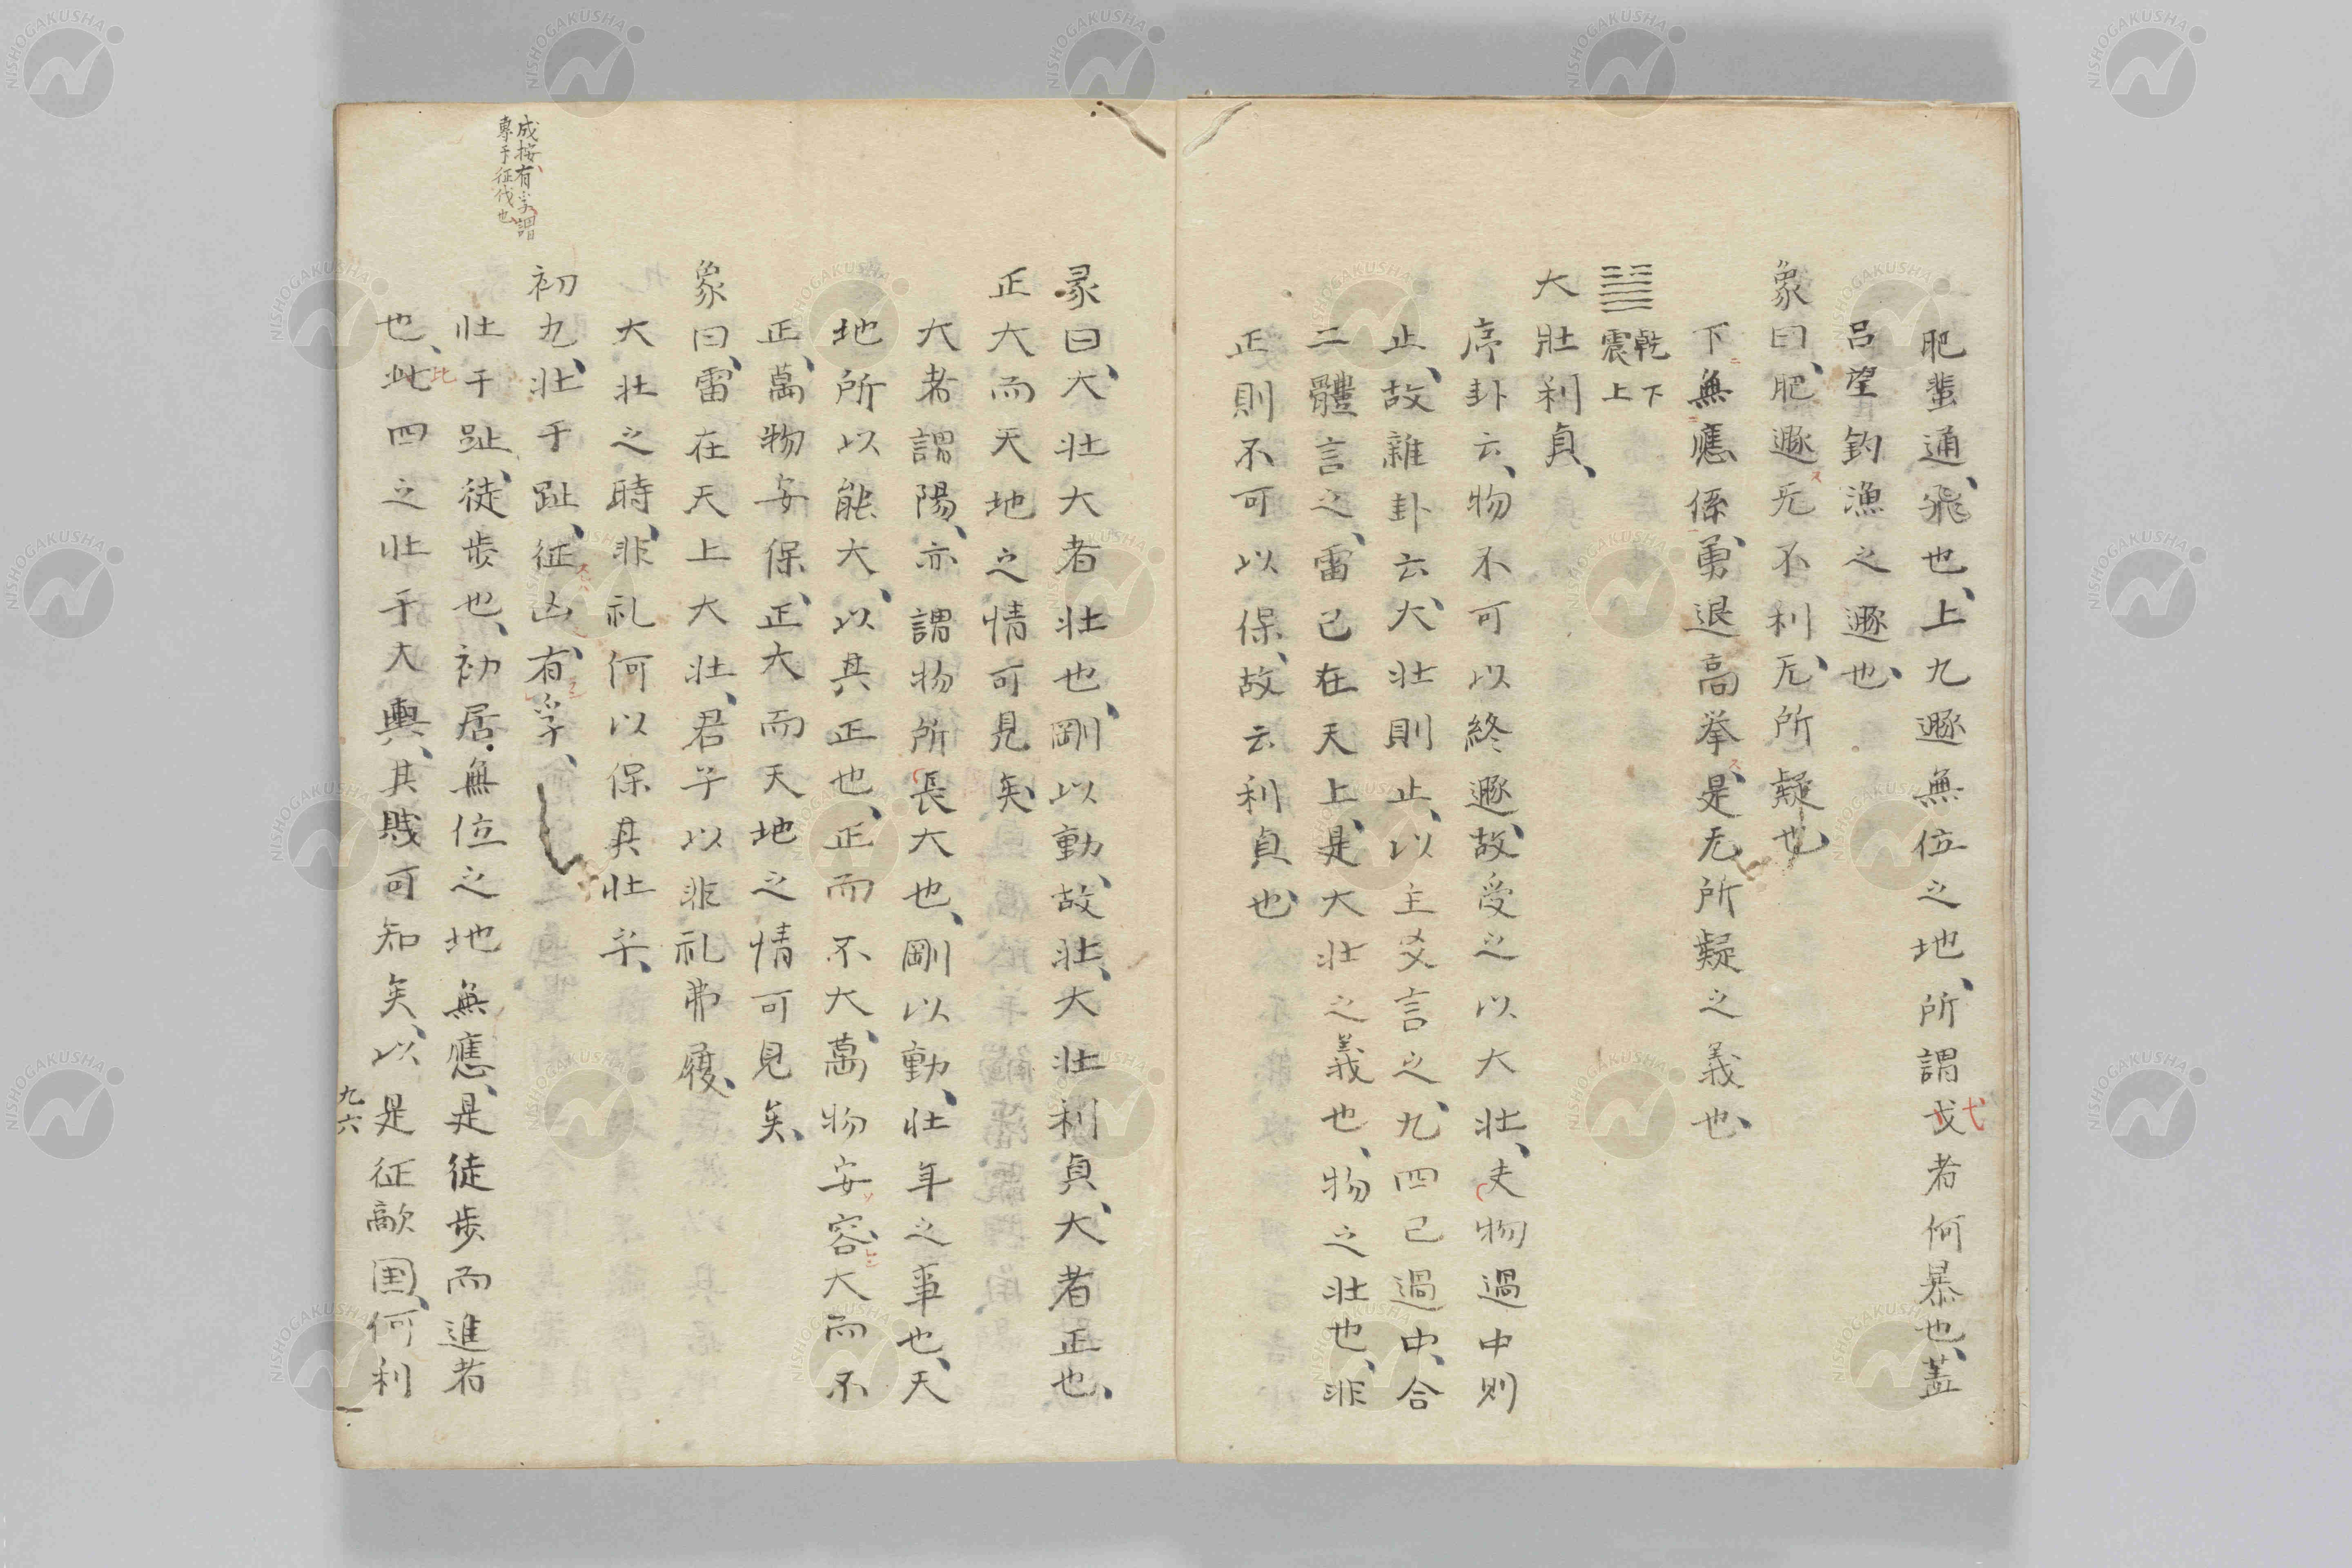 肥蜚通、飛也、上九遯無位之地、所謂戈者何暴也、蓋
弋
呂望釣漁之遯也、
象曰、肥遯无不利、无所疑也、
下無應係、勇退高挙、是无所疑之義也、
乾下
震上
大壯利貞、
序卦云、物不可以終遯、故受之以大壯、夫物過中則
止、故雜卦云、大壯則止、以主爻言之、九四已過中、合
二體言之、雷已在天上、是大壯之義也、物之壯也、非
正則不可以保、故云利貞也、
彖曰、大壯大者壯也、剛以動、故壯、大壯利貞、大者正也、
正大而天地之情可見矣、
大者謂陽、亦謂物所長大也、剛以動、壯年之事也、天
地所以能大、以其正也、正而不大、萬物安容、大而不
正、萬物安保、正大而天地之情可見矣、
象曰、雷在天上大壯、君子以非礼弗履、
大壯之時、非礼何以保其壯乎、
初九、壯于趾、征凶、有孚、
成按、有孚謂
專于征伐也
壯于趾、徒歩也、初居無位之地無應、是徒歩而進者
也、此四之壯于大輿、其賎可知矣、以是征敵国、何利
比
九六